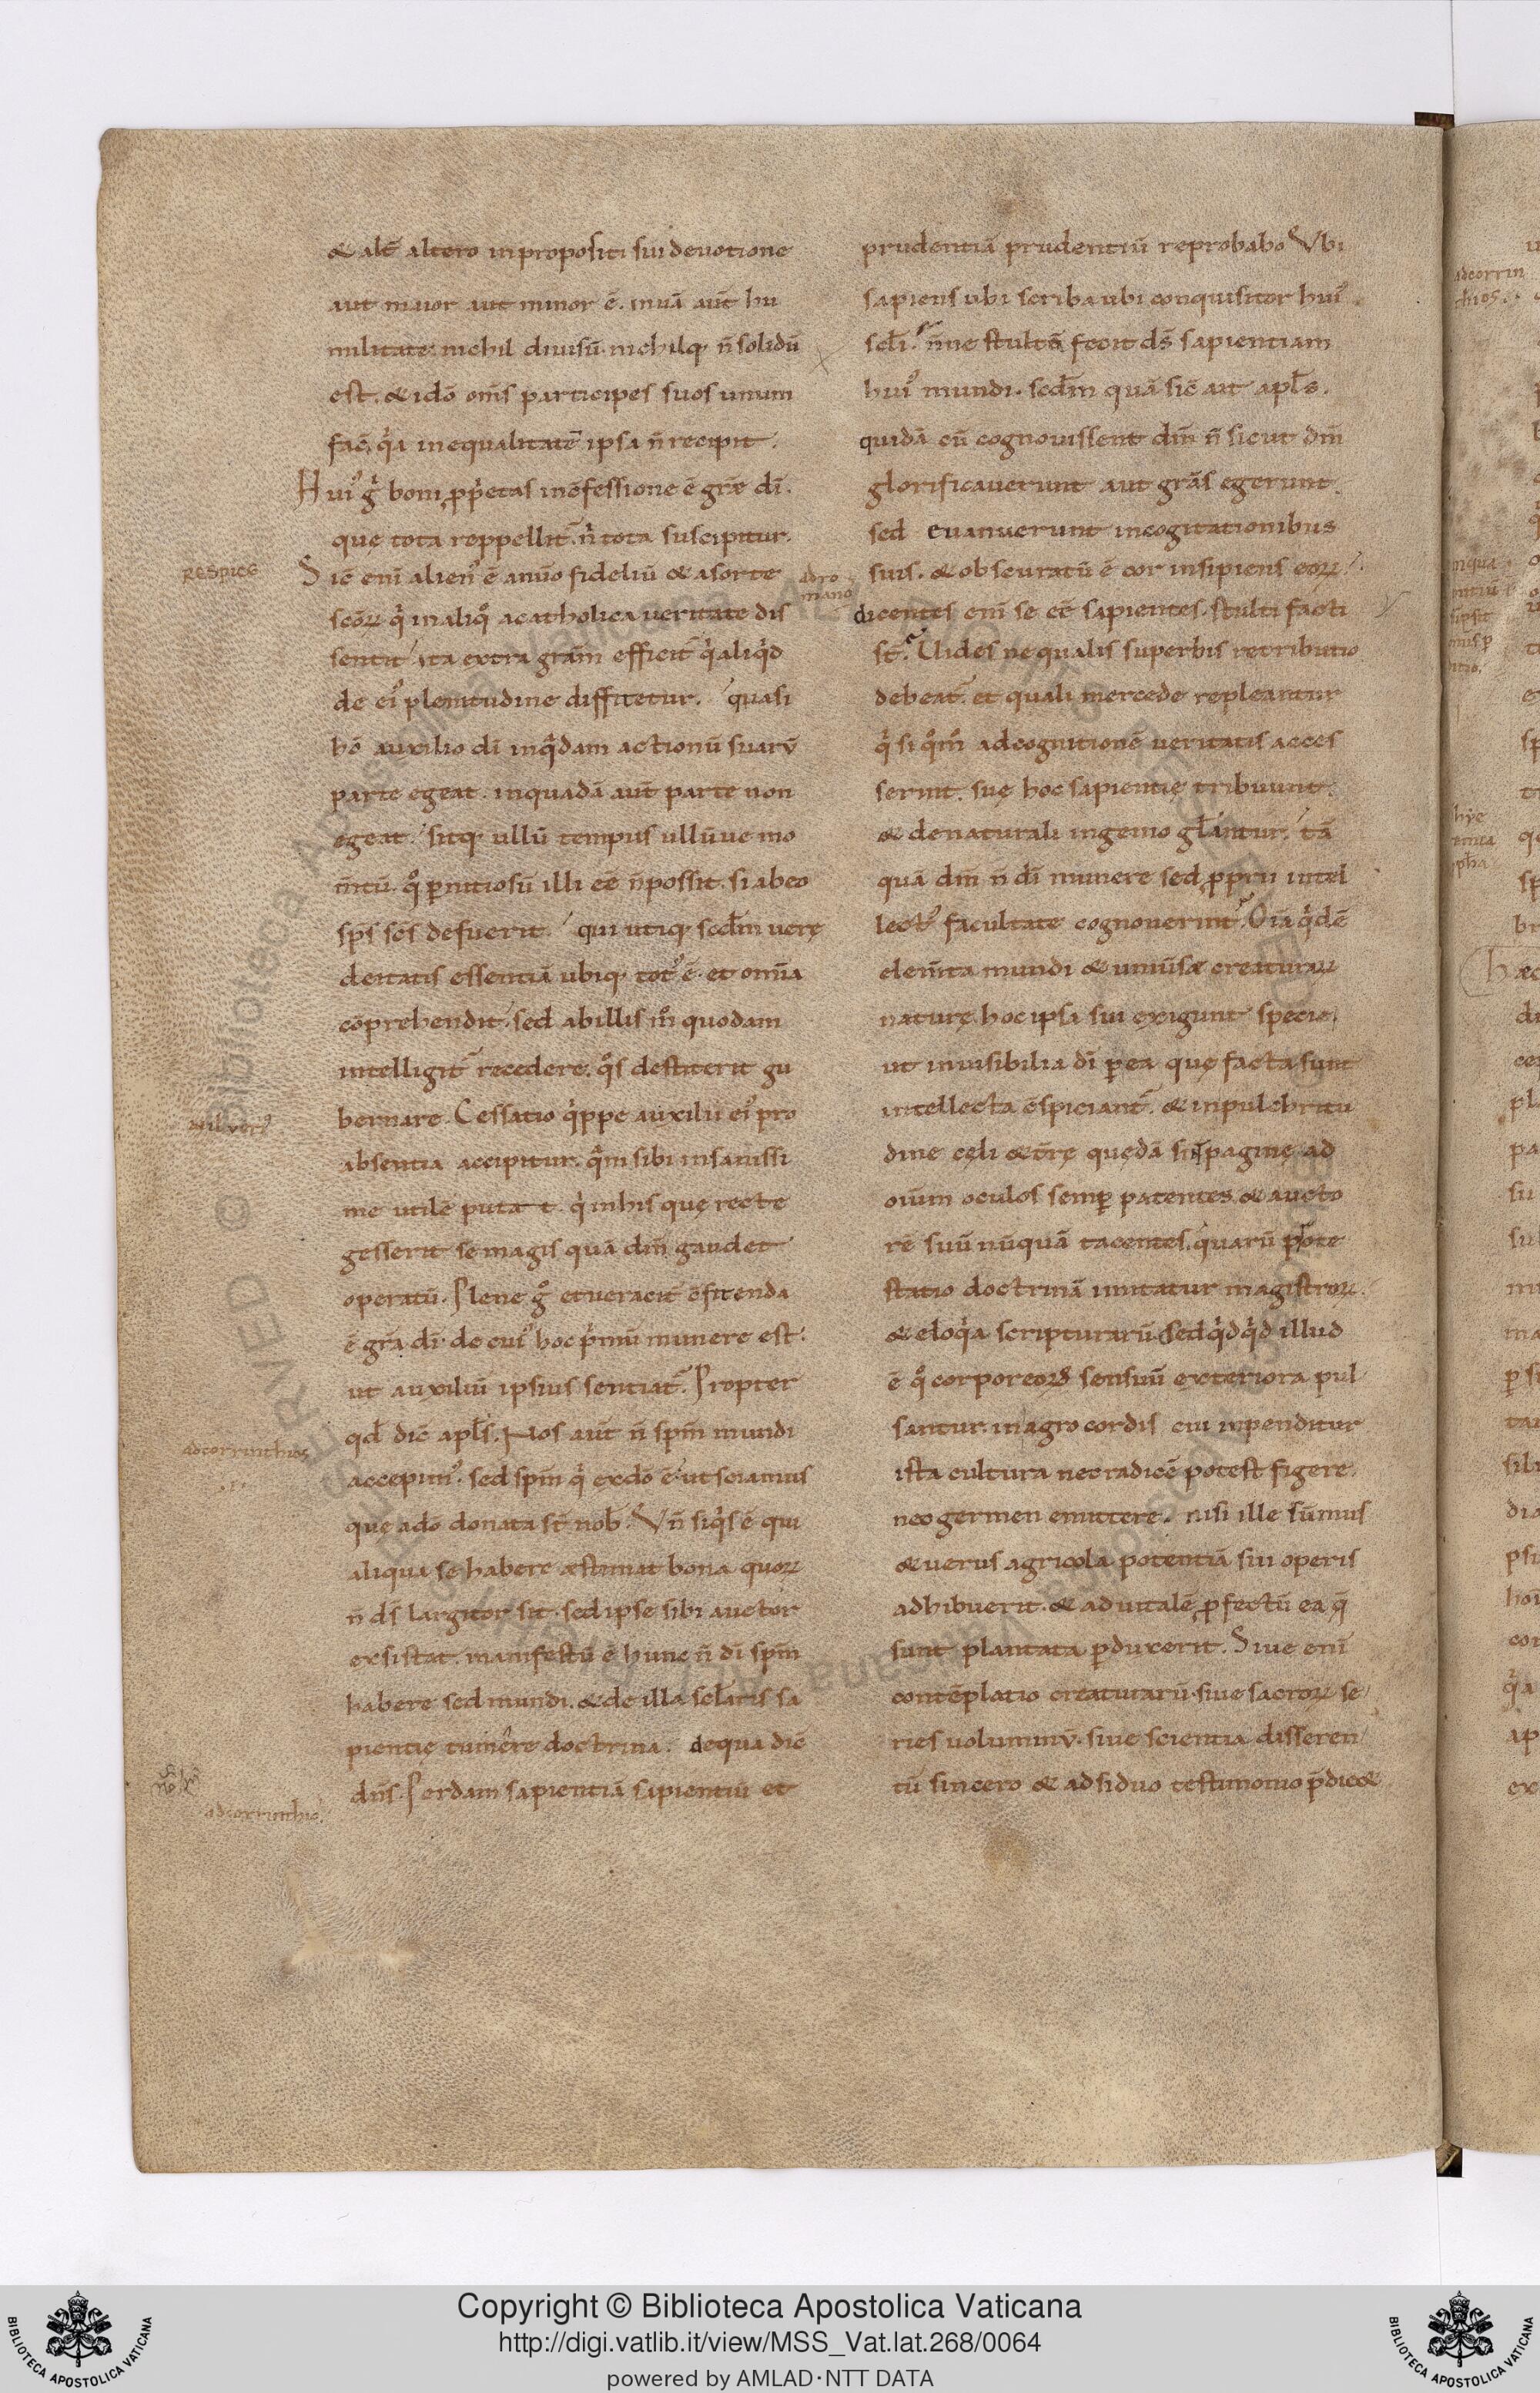 & alt̄ altero inpropositi sui deuotione
aut maior aut minor ē. inuā aut̄ hu
militate. nichil diuisū. nichilq; n̄ solidū
est. & idō om̄s participes suos unum
fac̄, qa inequalitatē ipsa n̄ recipit.
Hui' g boni p̱p̄etas incfessione ē grē dī.
que tota reppellit̄. ni tota suscipitur.
Sic̄ enī alien' ē anūo fideliū & asorte
scōꝝ qi inaliq acatholica ueritate dis
sentit. ita extra grām efficit̄ qi aliqd
de ei' plenitudine diffitetur. quasi
hō auxilio dī inqdam actionū suarū
parte egeat. inquadā aut̄ parte non
egeat. sitq; ullū tempus ullūue mo
m̄tū. qd ꝑnitiosū illi eē n̄ possit. si abeo
sp̄s sc̄s defuerit. qui utiq; scdm̄ uerę
deitatis essentiā ubiq; tot' ē. et omīa
cōprehendit. sed abillis m° quodam
intelligit̄ recedere. qos destiterit gu
bernare. Cessatio qippe auxilii ei' pro
absentia accipitur. qm sibi insanissi
me utilē putat. qi inhis quę recte
gesserit se magis quā dm̄ gaudet
operatū. Plene g° etueracit̄ cfitenda
ē grā dī. de cui' hoc pimū munere est.
ut auxiliū ipsius sentiat̄. Propter
qd̄ dic̄ apl̄s. Nos aut̄ n̄ spm̄ mundi
accepim'. sed spm̄ qi exdō ē. ut sciamus
quę adō donata st̄ nob̄. Vn̄ siqis ē qui
aliqua se habere æstimat bona quoꝝ
n̄ ds̄ largitor sit. sed ipse sibi auctor
exsistat. manifestū ē hunc n̄ dī spm̄
habere sed mundi. & de illa sel̄aris sa
pientię tumêre doctrina. dequa dic̄
dn̄s. Perdam sapientiā sapientiū et
Respice
adcorrinthios
adcorrinthio
prudentiā prudentiū reprobabo. Vbi
sapiens ubi scriba ubi conquisitor hui'
scl̄i? n̄ne stultā fecit ds̄ sapientiam
hui' mundi. scdm̄ quā sic̄ ait apl̄s.
quidā cū cognouissent dm̄ n̄ sicut dm̄
glorificauerunt aut grās egerunt.
sed euanuerunt incogitationibus
suis. & obscuratū ē cor insipiens eoꝝ.
dicentes enī se eē sapientes. stulti facti
st̄. Uides ne qualis superbis retributio
debeat̄. et quali mercede repleantur
qi si qom° adcognitionē ueritatis acces
serint. suę hoc sapientię tribuunt.
& denaturali ingenio gl̄antur. tā
quā dm̄ n̄ dī munere sed p̱prii intel
lect' facultate cognouerint. Oīa qidē
elem̄ta mundi & uniūsæ creaturaꝝ
naturę hoc ipsa sui exigunt specie.
ut inuisibilia dī ꝑea quę facta sunt
intellecta cspiciant̄. & inpulchritu
dine cęli & t̄rę quędā sint paginę ad
oīum oculos semꝑ patentes. & aucto
rē suū nūquā tacentes. quarū ꝑote
statio doctrinā imitatur magistroꝝ.
& eloqia scripturarū. Sed qidqid illud
ē qd corporeoꝝ sensuū exteriora pul
santur. inagro cordis cui inpenditur
ista cultura nec radicē potest figere.
nec germen emittere. nisi ille sūmus
& uerus agricola potentiā sui operis
adhibuerit. & ad uitalē p̱fectū ea q̄
sunt plantata p̱duxerit. Siue enī
contēplatio creaturarū. siue sacroꝝ se
ries uoluminū. siue scientia disseren
tū sincero & adsiduo testimonio p̄dic&
adro
mano
adcorrin
thios.
Copyright © Biblioteca Apostolica Vaticana
http://digi.vatlib.it/view/MSS_Vat.lat.268/0064
powered by AMLAD·NTT DATA
BIBLIOTECA APOSTOLICA VATICANA
BIBLIOTECA APOSTOLICA VATICANA